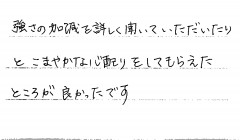 強さの加減を詳しく聞いていただいたり
と こまやかな心配りをしてもらえた
ところが良かったです